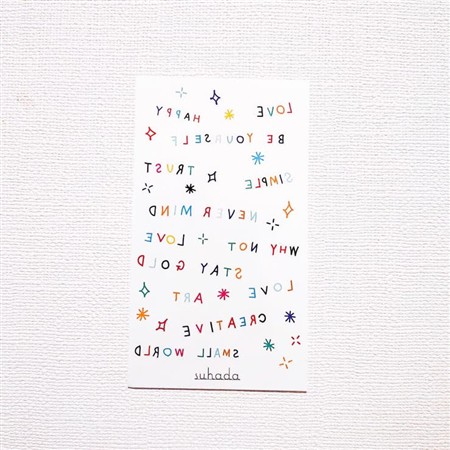 HAPPY LOVE
BE YOURSELF
TRUST
SIMPLE
NEVER MIND
LOVE
WHY NOT
STAY GOLD
LOVE
ART
CREATIVE
SMALL WORLD
suhada